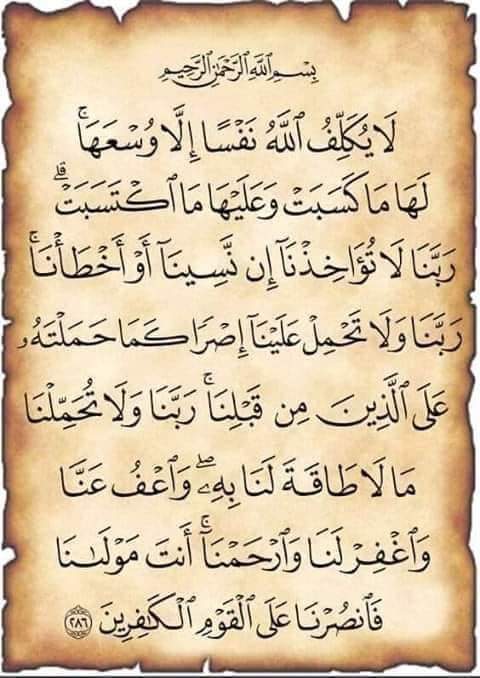 بِسْمِ ٱللَّهِ ٱلرَّحْمَٰنِ ٱلرَّحِيمِ
لَا يُكَلِّفُ ٱللَّهُ نَفْسًا إِلَّا وُسْعَهَا ۚ
لَهَا مَا كَسَبَتْ وَعَلَيْهَا مَا ٱكْتَسَبَتْ ۗ
رَبَّنَا لَا تُؤَاخِذْنَآ إِن نَّسِينَآ أَوْ أَخْطَأْنَا ۚ
رَبَّنَا وَلَا تَحْمِلْ عَلَيْنَآ إِصْرًا كَمَا حَمَلْتَهُۥ
عَلَى ٱلَّذِينَ مِن قَبْلِنَا ۚ رَبَّنَا وَلَا تُحَمِّلْنَا
مَا لَا طَاقَةَ لَنَا بِهِۦ ۖ وَٱعْفُ عَنَّا
وَٱغْفِرْ لَنَا وَٱرْحَمْنَآ ۚ أَنتَ مَوْلَىٰنَا
فَٱنصُرْنَا عَلَى ٱلْقَوْمِ ٱلْكَٰفِرِينَ ٢٨٦